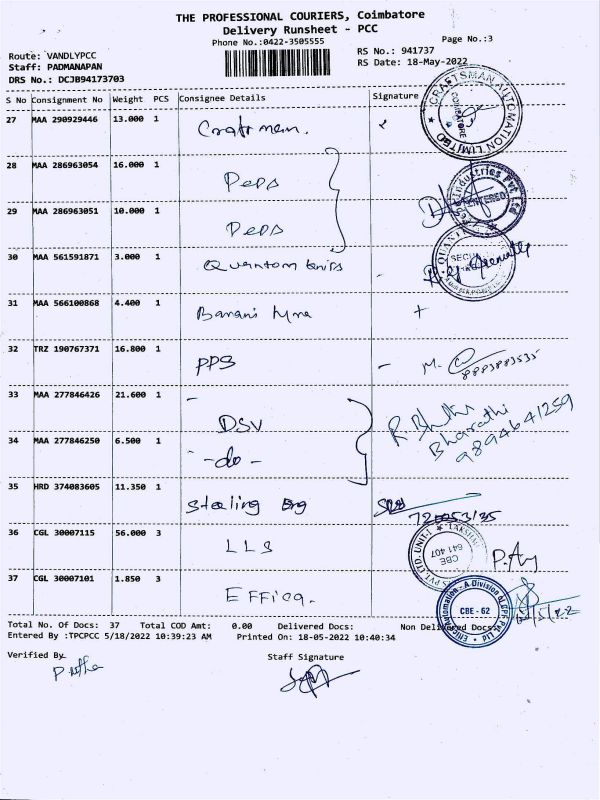 THE PROFESSIONAL COURIERS, Coimbatore
Delivery Runsheet - PCC
Phone No.:0422-3505555
Page No.:3
Route: VANDLYPCC
Staff: PADMANAPAN
DRS No.: DCJB94173703
RS No.: 941737
RS Date: 18-May-2022
S No Consignment No Weight PCS Consignee Details Signature
27 MAA 290929446 13.000 1 Craftsman.
CRAFTSMAN AUTOMATION LIMITED COIMBATORE
28 MAA 286963054 16.000 1 Peps
Industries Pvt Ltd ENTERED
29 MAA 286963051 10.000 1 Peps
30 MAA 561591871 3.000 1 Quantom knits
31 MAA 566100868 4.400 1 Banani
32 TRZ 190767371 16.800 1 PPS - M. 8883883535
33 MAA 277846426 21.600 1 DSV R
Bharathi
9894641259
34 MAA 277846250 6.500 1 -do-
35 HRD 374083605 11.350 1 Stealing Eng
36 CGL 30007115 56.000 3 LLS
PVT. LTD. UNIT-I LAKSHMI CBE 641 407
37 CGL 30007101 1.850 3 Effica.
Effica Automation - A Division of LPF Pvt Ltd CBE - 62
Total No. Of Docs: 37 Total COD Amt: 0.00 Delivered Docs: Non Delivered Docs:
Entered By :TPCPCC 5/18/2022 10:39:23 AM Printed On: 18-05-2022 10:40:34
Verified By
Staff Signature